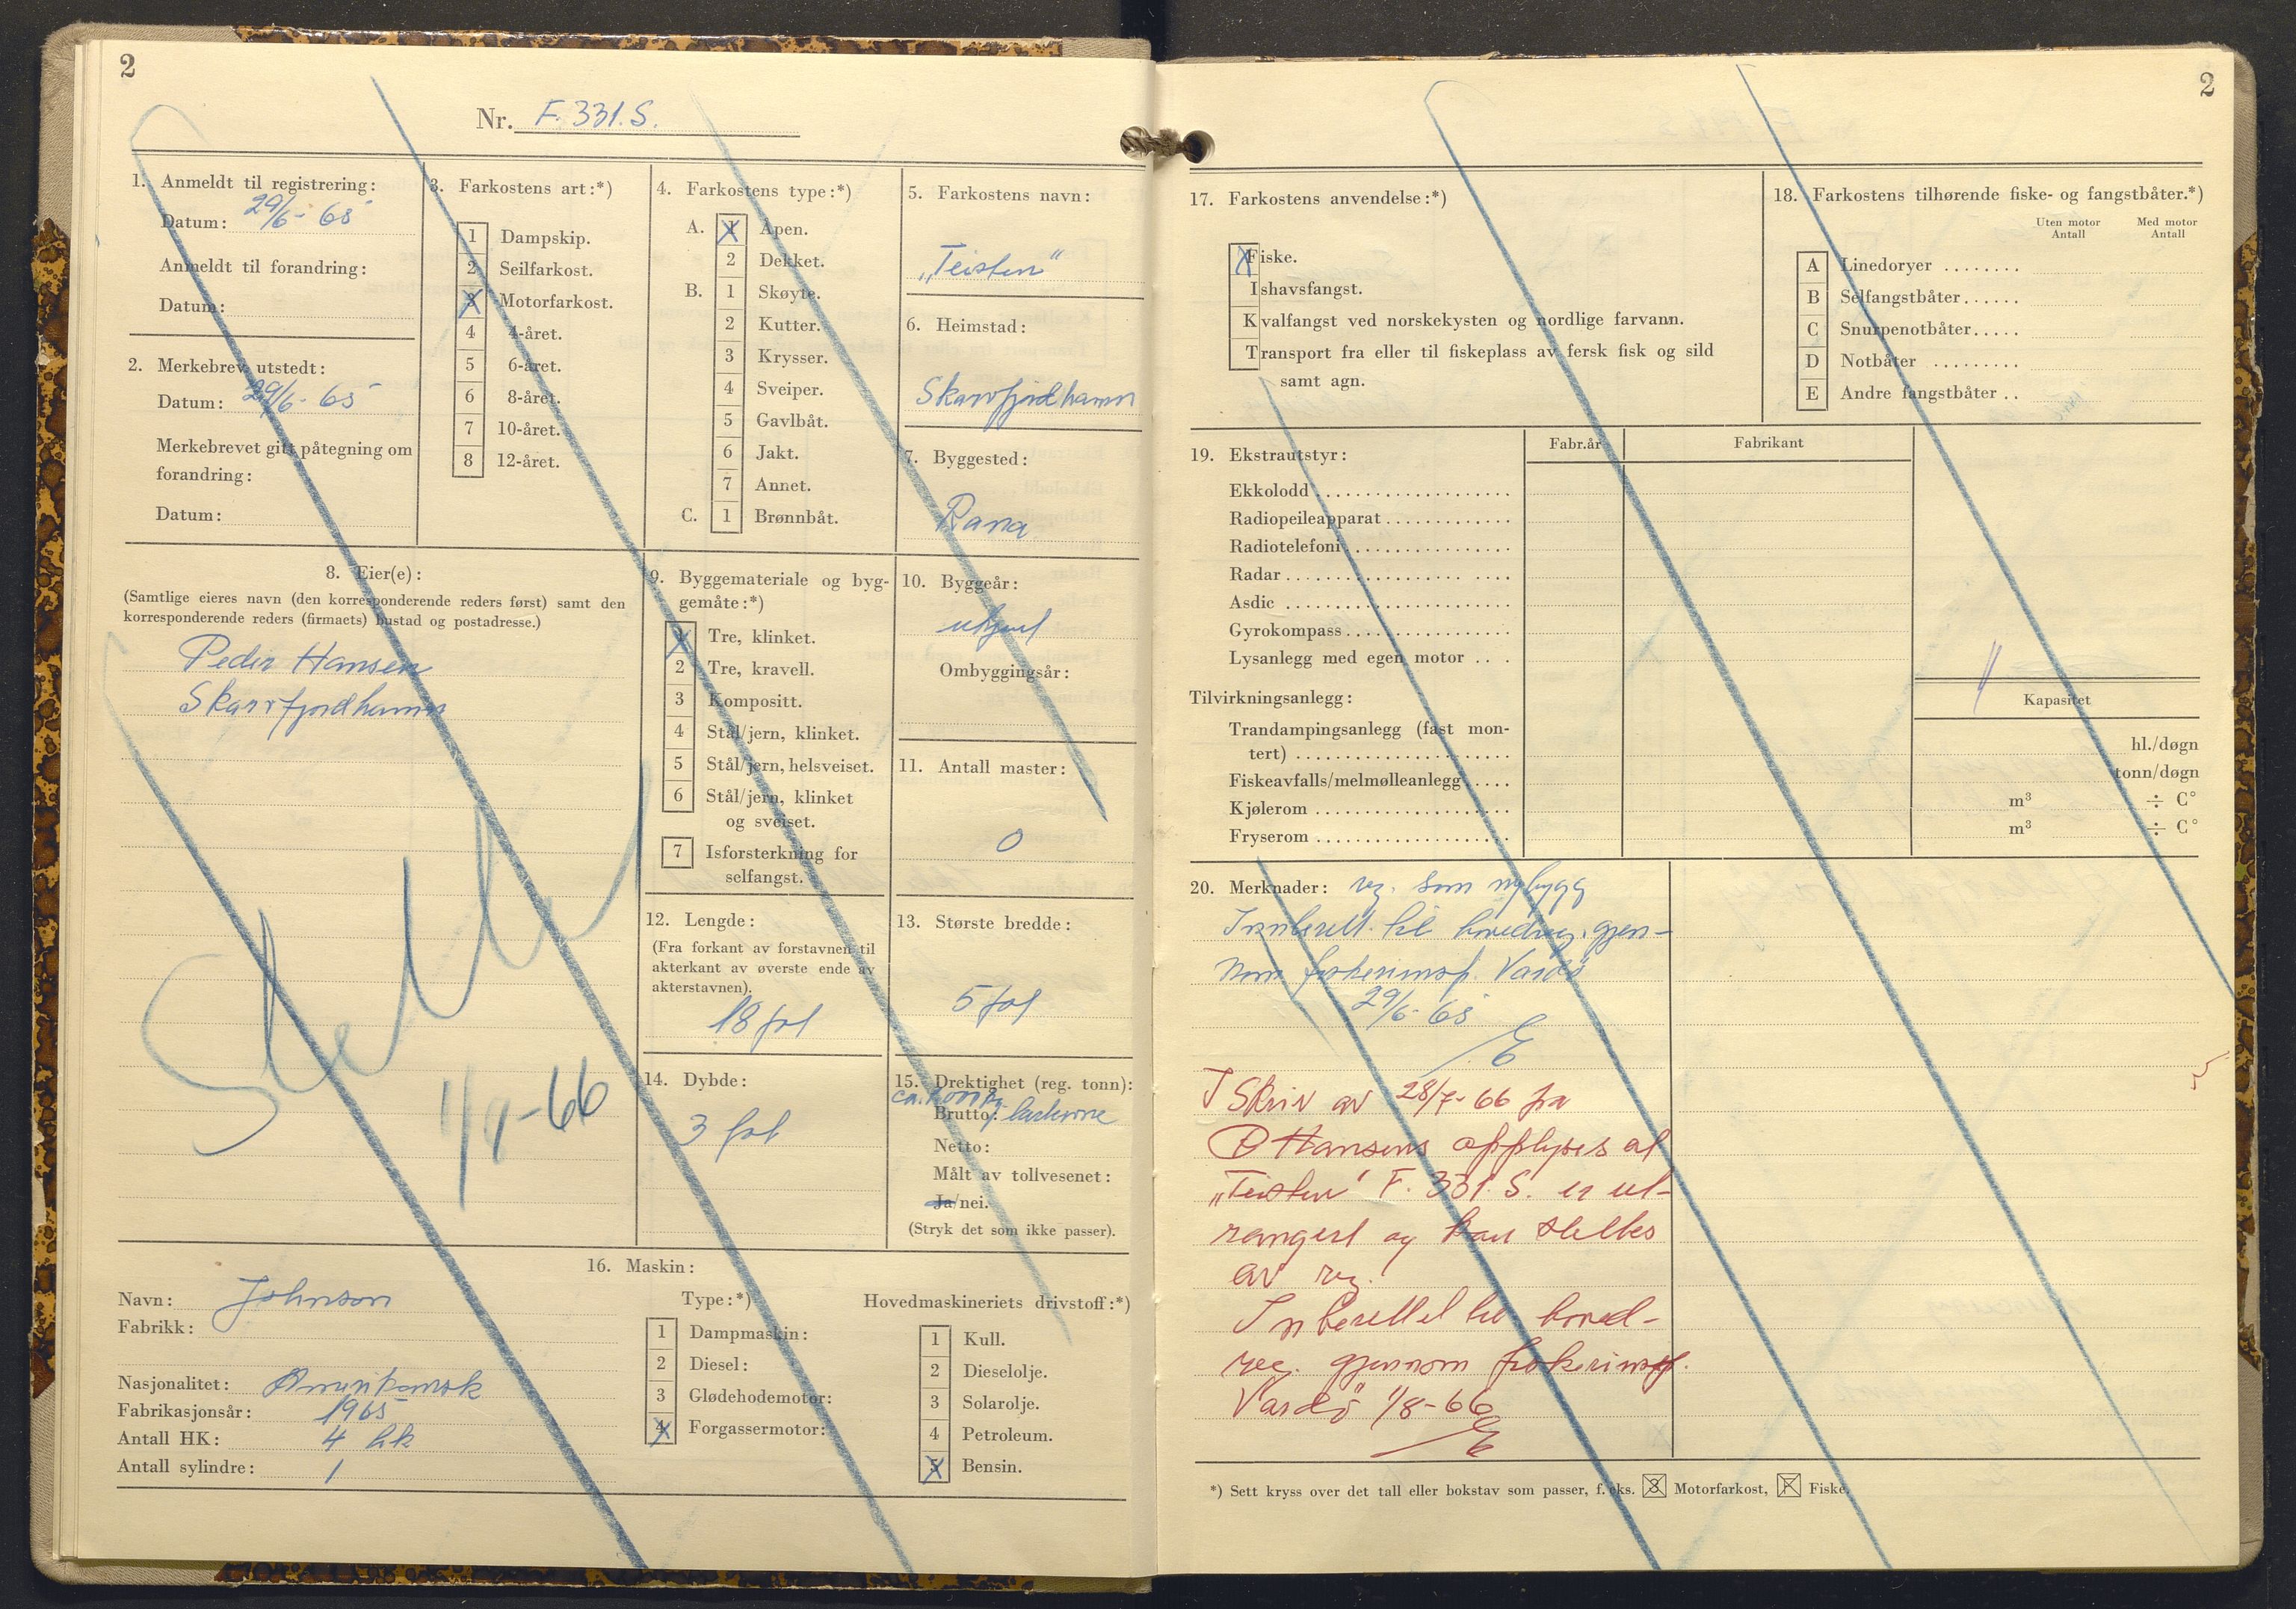 2
Nr. F. 331. S.
1. Anmeldt til registrering:
Datum: 29/6- 65
Anmeldt til forandring:
Datum:
2. Merkebrev utstedt:
Datum: 29/6- 65
Merkebrevet gitt påtegning om
forandring:
Datum:
3. Farkostens art:*)
1 Dampskip.
2 Seilfarkost.
3 Motorfarkost.
4 4-året.
5 6-året.
6 8-året.
7 10-året.
8 12-året.
4. Farkostens type:*)
A. 1 Åpen.
2 Dekket.
B. 1 Skøyte.
2 Kutter.
3 Krysser.
4 Sveiper.
5 Gavlbåt.
6 Jakt.
7 Annet.
C. 1 Brønnbåt.
5. Farkostens navn:
„Teisten"
6. Heimstad:
Skarvfjordhamn
7. Byggested:
Rana
8. Eier(e):
(Samtlige eieres navn (den korresponderende reders først) samt den
korresponderende reders (firmaets) bustad og postadresse.)
Peder Hansen
Skarvfjordhamn
Slettet
1/8-66
9. Byggemateriale og byg-
gemåte:*)
1 Tre, klinket.
2 Tre, kravell.
3 Kompositt.
4 Stål/jern, klinket.
5 Stål/jern, helsveiset.
6 Stål/jern, klinket
og sveiset.
7 Isforsterkning for
selfangst.
10. Byggeår:
ukjent
Ombyggingsår:
11. Antall master:
0
12. Lengde:
(Fra forkant av forstavnen til
akterkant av øverste ende av
akterstavnen).
18 fot
13. Største bredde:
5 fot
14. Dybde:
3 fot
15. Drektighet (reg. tonn):
Brutto:
Netto:
Målt av tollvesenet:
Ja/nei.
(Stryk det som ikke passer).
16. Maskin:
Navn: Johnson
Fabrikk:
Nasjonalitet: Amerikansk
Fabrikasjonsår: 1965
Antall HK: 4 hk
Antall sylindre: 1
Type:*)
1 Dampmaskin:
2 Diesel:
3 Glødehodemotor:
4 Forgassermotor:
Hovedmaskineriets drivstoff:*)
1 Kull.
2 Dieselolje.
3 Solarolje.
4 Petroleum.
5 Bensin.
2
17. Farkostens anvendelse:*)
Fiske.
Ishavsfangst.
Kvalfangst ved norskekysten og nordlige farvann.
Transport fra eller til fiskeplass av fersk fisk og sild
samt agn.
18. Farkostens tilhørende fiske- og fangstbåter.*)
Uten motor Antall
Med motor Antall
A Linedoryer ........
B Selfangstbåter......
C Snurpenotbåter.....
D Notbåter .........
E Andre fangstbåter ..
19. Ekstrautstyr:
Fabr.år
Fabrikant
Ekkolodd
Radiopeileapparat
Radiotelefoni
Radar
Asdic
Gyrokompass
Lysanlegg med egen motor
Tilvirkningsanlegg:
Kapasitet
Trandampingsanlegg (fast mon-
tert) hl./døgn
Fiskeavfalls/melmølleanlegg tonn/døgn
Kjølerom m³ ÷ C°
Fryserom m³ ÷ C°
20. Merknader: reg. som nybygg
Innberett. til hovedreg. gjen-
nom fiskerinsp. Vardö
29/6- 65
E
I Skriv av 28/7- 66 fra
P Hansens opplyses at
„Teisten" F. 331. S. er ut-
rangert og kan slettes
av reg.
Inberettet til hoved-
reg. gjennom fiskerinsp.
Vardö 1/8-66
E
*) Sett kryss over det tall eller bokstav som passer, f. eks. 3 Motorfarkost, F Fiske.